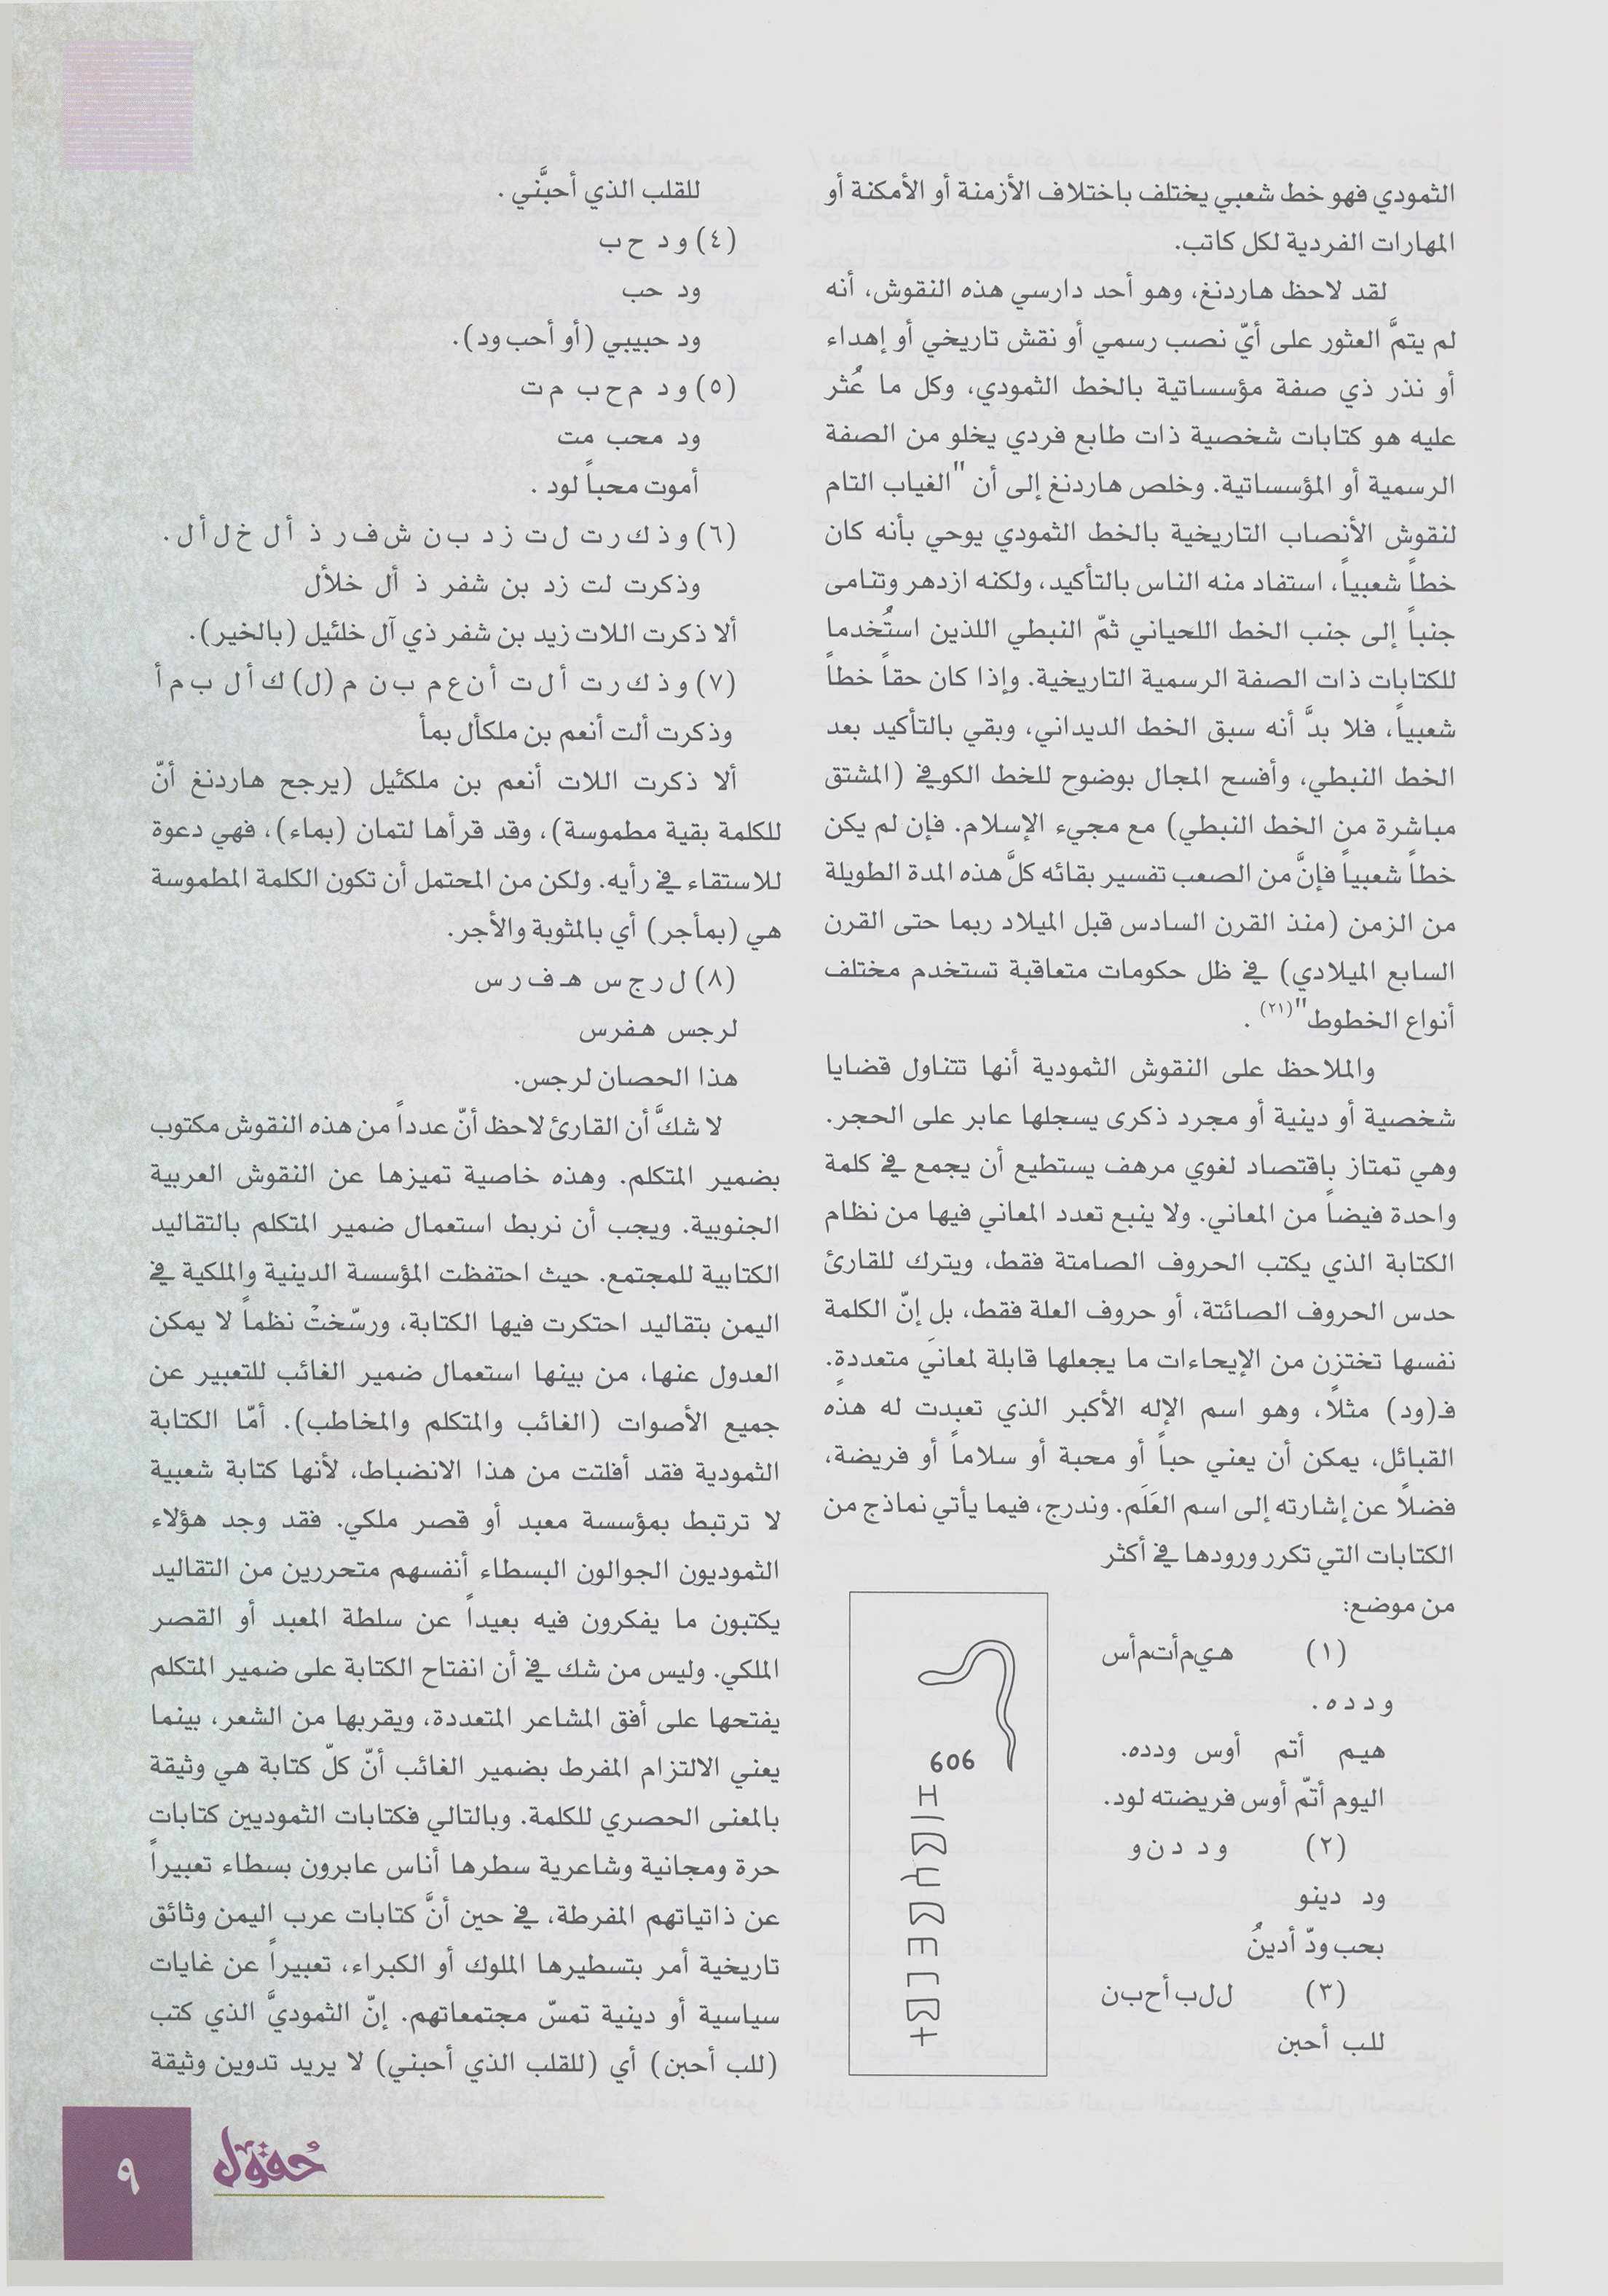 الثمودي فهو خط شعبي يختلف باختلاف الأزمنة أو الأمكنة أو
المهارات الفردية لكل كاتب.
لقد لاحظ هاردنغ، وهو أحد دارسي هذه النقوش، أنه
لم يتمَّ العثور على أيّ نصب رسمي أو نقش تاريخي أو إهداء
أو نذر ذي صفة مؤسساتية بالخط الثمودي، وكل ما عُثر
عليه هو كتابات شخصية ذات طابع فردي يخلو من الصفة
الرسمية أو المؤسساتية. وخلص هاردنغ إلى أن "الغياب التام
لنقوش الأنصاب التاريخية بالخط الثمودي يوحي بأنه كان
خطاً شعبياً، استفاد منه الناس بالتأكيد، ولكنه ازدهر وتنامى
جنباً إلى جنب الخط اللحياني ثمّ النبطي اللذين استُخدما
للكتابات ذات الصفة الرسمية التاريخية. وإذا كان حقاً خطاً
شعبياً، فلا بدَّ أنه سبق الخط الديداني، وبقي بالتأكيد بعد
الخط النبطي، وأفسح المجال بوضوح للخط الكوفي (المشتق
مباشرة من الخط النبطي) مع مجيء الإسلام. فإن لم يكن
خطاً شعبياً فإنَّ من الصعب تفسير بقائه كلَّ هذه المدة الطويلة
من الزمن (منذ القرن السادس قبل الميلاد ربما حتى القرن
السابع الميلادي) في ظل حكومات متعاقبة تستخدم مختلف
أنواع الخطوط"(٢١) .
والملاحظ على النقوش الثمودية أنها تتناول قضايا
شخصية أو دينية أو مجرد ذكرى يسجلها عابر على الحجر.
وهي تمتاز باقتصاد لغوي مرهف يستطيع أن يجمع في كلمة
واحدة فيضاً من المعاني. ولا ينبع تعدد المعاني فيها من نظام
الكتابة الذي يكتب الحروف الصامتة فقط، ويترك للقارئ
حدس الحروف الصائتة، أو حروف العلة فقط، بل إنّ الكلمة
نفسها تختزن من الإيحاءات ما يجعلها قابلة لمعانيَ متعددةٍ.
فـ(ود) مثلاً، وهو اسم الإله الأكبر الذي تعبدت له هذه
القبائل، يمكن أن يعني حباً أو محبة أو سلاماً أو فريضة،
فضلاً عن إشارته إلى اسم العَلَم. وندرج، فيما يأتي نماذج من
الكتابات التي تكرر ورودها في أكثر
من موضع:
(١) هـ ي م أ ت م أ س
و د د ه .
هيم أتم أوس ودده.
اليوم أتمّ أوس فريضته لود.
(٢) و د د ن و
ود دينو
بحب ودّ أدينُ
(٣) ل ل ب أ ح ب ن
للب أحبن
606
للقلب الذي أحبَّني .
(٤) و د ح ب
ود حب
ود حبيبي (أو أحب ود).
(٥) و د م ح ب م ت
ود محب مت
أموت محباً لود .
(٦) و ذ ك ر ت ل ت ز د ب ن ش ف ر ذ أ ل خ ل أ ل .
وذكرت لت زد بن شفر ذ أل خلأل
ألا ذكرت اللات زيد بن شفر ذي آل خلئيل (بالخير).
(٧) و ذ ك ر ت أ ل ت أ ن ع م ب ن م (ل) ك أ ل ب م أ
وذكرت ألت أنعم بن ملكأل بمأ
ألا ذكرت اللات أنعم بن ملكئيل (يرجح هاردنغ أنّ
للكلمة بقية مطموسة)، وقد قرأها لتمان (بماء)، فهي دعوة
للاستقاء في رأيه. ولكن من المحتمل أن تكون الكلمة المطموسة
هي (بمأجر) أي بالمثوبة والأجر.
(٨) ل ر ج س هـ ف ر س
لرجس هفرس
هذا الحصان لرجس.
لا شكَّ أن القارئ لاحظ أنّ عدداً من هذه النقوش مكتوب
بضمير المتكلم. وهذه خاصية تميزها عن النقوش العربية
الجنوبية. ويجب أن نربط استعمال ضمير المتكلم بالتقاليد
الكتابية للمجتمع. حيث احتفظت المؤسسة الدينية والملكية في
اليمن بتقاليد احتكرت فيها الكتابة، ورسّختْ نظماً لا يمكن
العدول عنها، من بينها استعمال ضمير الغائب للتعبير عن
جميع الأصوات (الغائب والمتكلم والمخاطب). أمّا الكتابة
الثمودية فقد أفلتت من هذا الانضباط، لأنها كتابة شعبية
لا ترتبط بمؤسسة معبد أو قصر ملكي. فقد وجد هؤلاء
الثموديون الجوالون البسطاء أنفسهم متحررين من التقاليد
يكتبون ما يفكرون فيه بعيداً عن سلطة المعبد أو القصر
الملكي. وليس من شك في أن انفتاح الكتابة على ضمير المتكلم
يفتحها على أفق المشاعر المتعددة، ويقربها من الشعر، بينما
يعني الالتزام المفرط بضمير الغائب أنّ كلّ كتابة هي وثيقة
بالمعنى الحصري للكلمة. وبالتالي فكتابات الثموديين كتابات
حرة ومجانية وشاعرية سطرها أناس عابرون بسطاء تعبيراً
عن ذاتياتهم المفرطة، في حين أنَّ كتابات عرب اليمن وثائق
تاريخية أمر بتسطيرها الملوك أو الكبراء، تعبيراً عن غايات
سياسية أو دينية تمسّ مجتمعاتهم. إنّ الثموديَّ الذي كتب
(للب أحبن) أي (للقلب الذي أحبني) لا يريد تدوين وثيقة
حُقول
٩